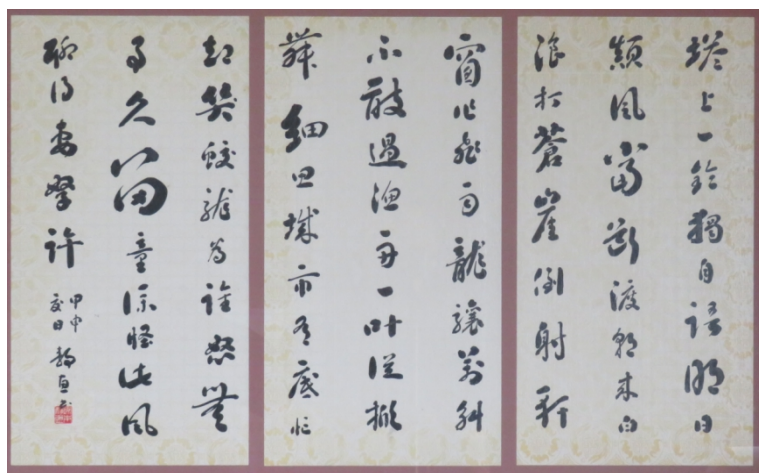 塔上一鈴獨自語明日
顛風當斷渡朝來白
浪打蒼崖倒射軒
窗作飛雨龍驤萬斛
不敢過漁舟一叶從掀
舞細思城市有底忙
却笑蛟龍為誰怒無
事久留童僕怪此風
聊得妻孥許
甲申
夏日